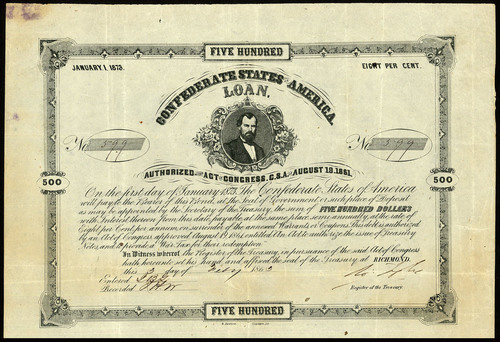 FIVE HUNDRED
JANUARY. 1. 1873.
EIGHT PER CENT.
CONFEDERATE STATES AMERICA.
LOAN.
No 599
No 599
AUTHORIZED ACT OF CONGRESS, C.S.A. OF AUGUST 19. 1861.
500
500
On the first day of January 1873, The Confederate States of America
will pay to the Bearer of this Bond, at the Seal of Government, or such place of Deposit
as may be appointed by the Secretary of the Treasury, the sum of FIVE HUNDRED DOLLARS
with Interest thereon from this date, payable at the same place semi annually, at the rate of
Eight per Cent per annum, on surrender of the annexed Warrants or Coupons. This debt is authorized
by an Act of Congress approved August 19. 1861, entitled An Act to authorize the issue of Treasury
Notes and to provide a War Tax for their redemption.
In Witness whereof The Register of the Treasury, in pursuance of the said Act of Congress
hath hereunto set his hand, and affixed the seal of the Treasury at RICHMOND,
this day of 186
Entered
Recorded
Register of the Treasury.
FIVE HUNDRED